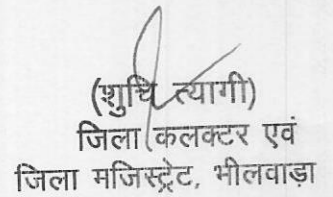 (शुचि त्यागी)
जिला कलक्टर एवं
जिला मजिस्ट्रेट, भीलवाड़ा